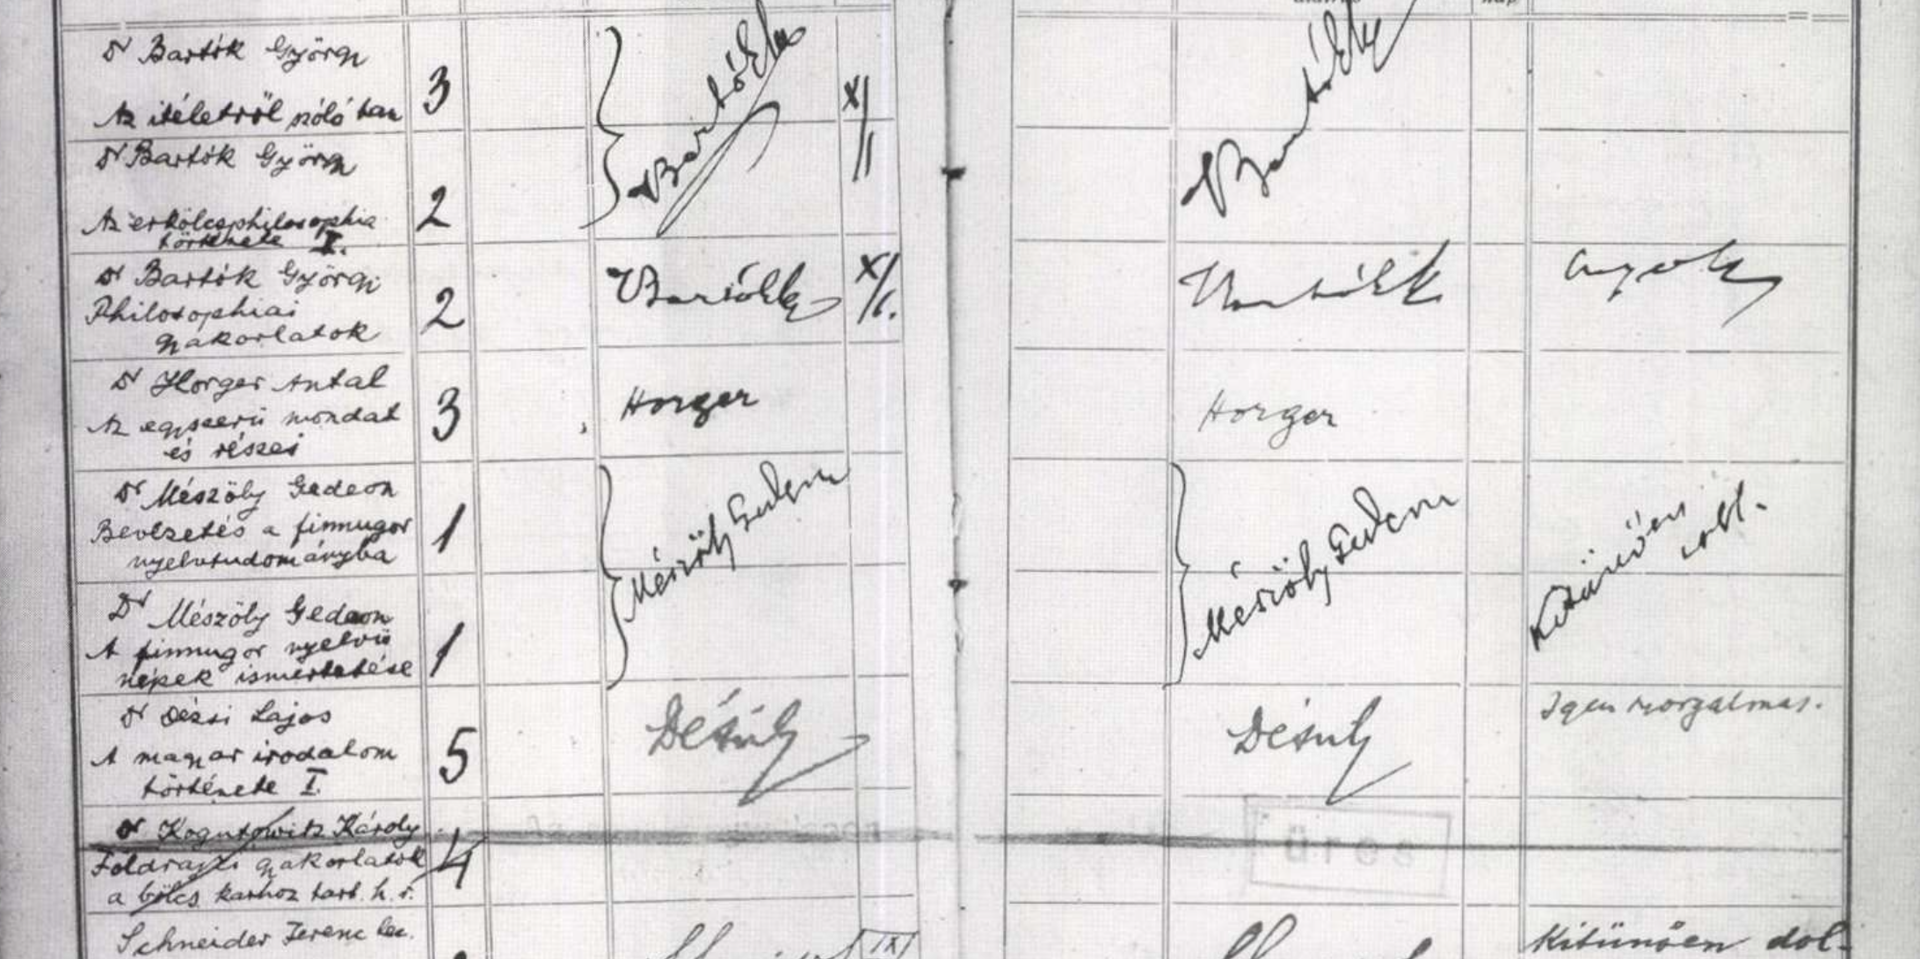 Dr Bartók György
Az itéletről szóló tan
3
Bartók
X/1
Bartók
Dr Bartók György
Az erkölcsphilosophia
története I.
2
Dr Bartók György
Philosophiai
gyakorlatok
2
Bartók
X/1.
Bartók
Dr Horger Antal
Az egyszerű mondat
és részei
3
Horger
Horger
Dr Mészöly Gedeon
Bevezetés a finnugor
nyelvtudományba
1
Mészöly Gedeon
Mészöly Gedeon
Kitünően
volt.
Dr Mészöly Gedeon
A finnugor nyelvü
népek ismertetése
1
Dr Dézsi Lajos
A magyar irodalom
története I.
5
Dézsi
Dézsi
Igen szorgalmas.
Dr Kogutowitz Károly
Földrajzi gyakorlatok
a bölcs. karhoz tart. h. r.
4
üres
Schneider Ferenc lec.
IX
Kitünően dol-